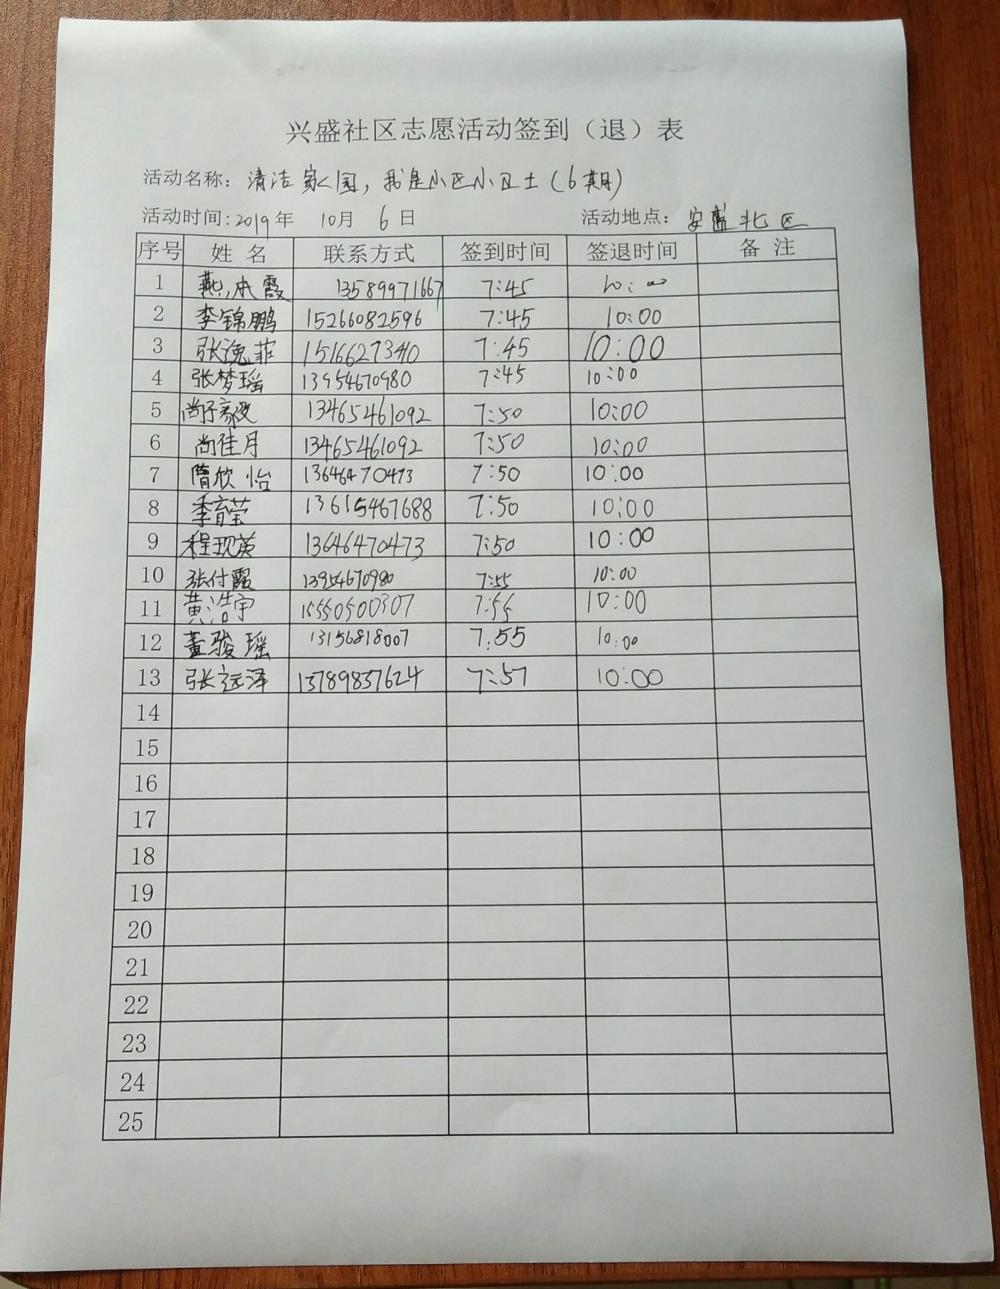 兴盛社区志愿活动签到（退）表
活动名称：清洁家园，我是小区小卫士（6期）
活动时间：2019年 10月 6日 活动地点：安盛北区
序号 姓名 联系方式 签到时间 签退时间 备注
1 燕小霞 13589971667 7:45 10:00
2 李锦鹏 15266082596 7:45 10:00
3 张逸菲 1516627340 7:45 10:00
4 张梦瑶 13954670980 7:45 10:00
5 尚子毅 13465461092 7:50 10:00
6 尚佳月 13465461092 7:50 10:00
7 隋欣怡 13646470473 7:50 10:00
8 季育莹 13615467688 7:50 10:00
9 程现英 13646470473 7:50 10:00
10 张付霞 13954670980 7:55 10:00
11 黄浩宇 15550500307 7:55 10:00
12 董骏瑶 13156818007 7:55 10:00
13 张远泽 13789837624 7:57 10:00
14
15
16
17
18
19
20
21
22
23
24
25